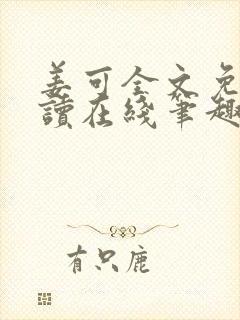 姜可全文免
读在綫筆趣
有只鹿